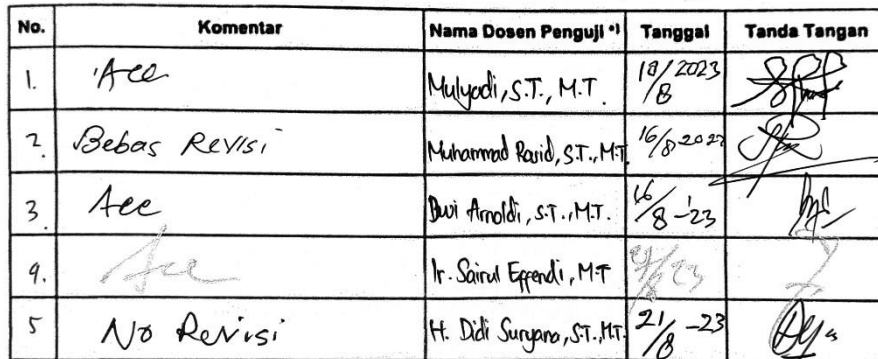 No. Komentar Nama Dosen Penguji *) Tanggal Tanda Tangan
1. Acc Mulyadi, S.T., M.T. 18/8 2023
2 Bebas Revisi Muhammad Rasid, S.T., M.T. 16/8 2023
3. Acc Dwi Arnoldi, S.T., M.T. 16/8-'23
4. Acc Ir. Sairul Effendi, M.T
5 No Revisi H. Didi Suryana, S.T., M.T. 21/8-23